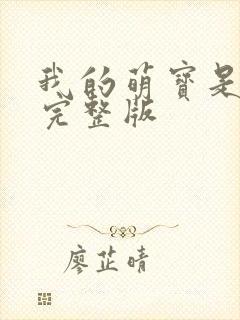 我的萌寶是
完整版
廖芷晴